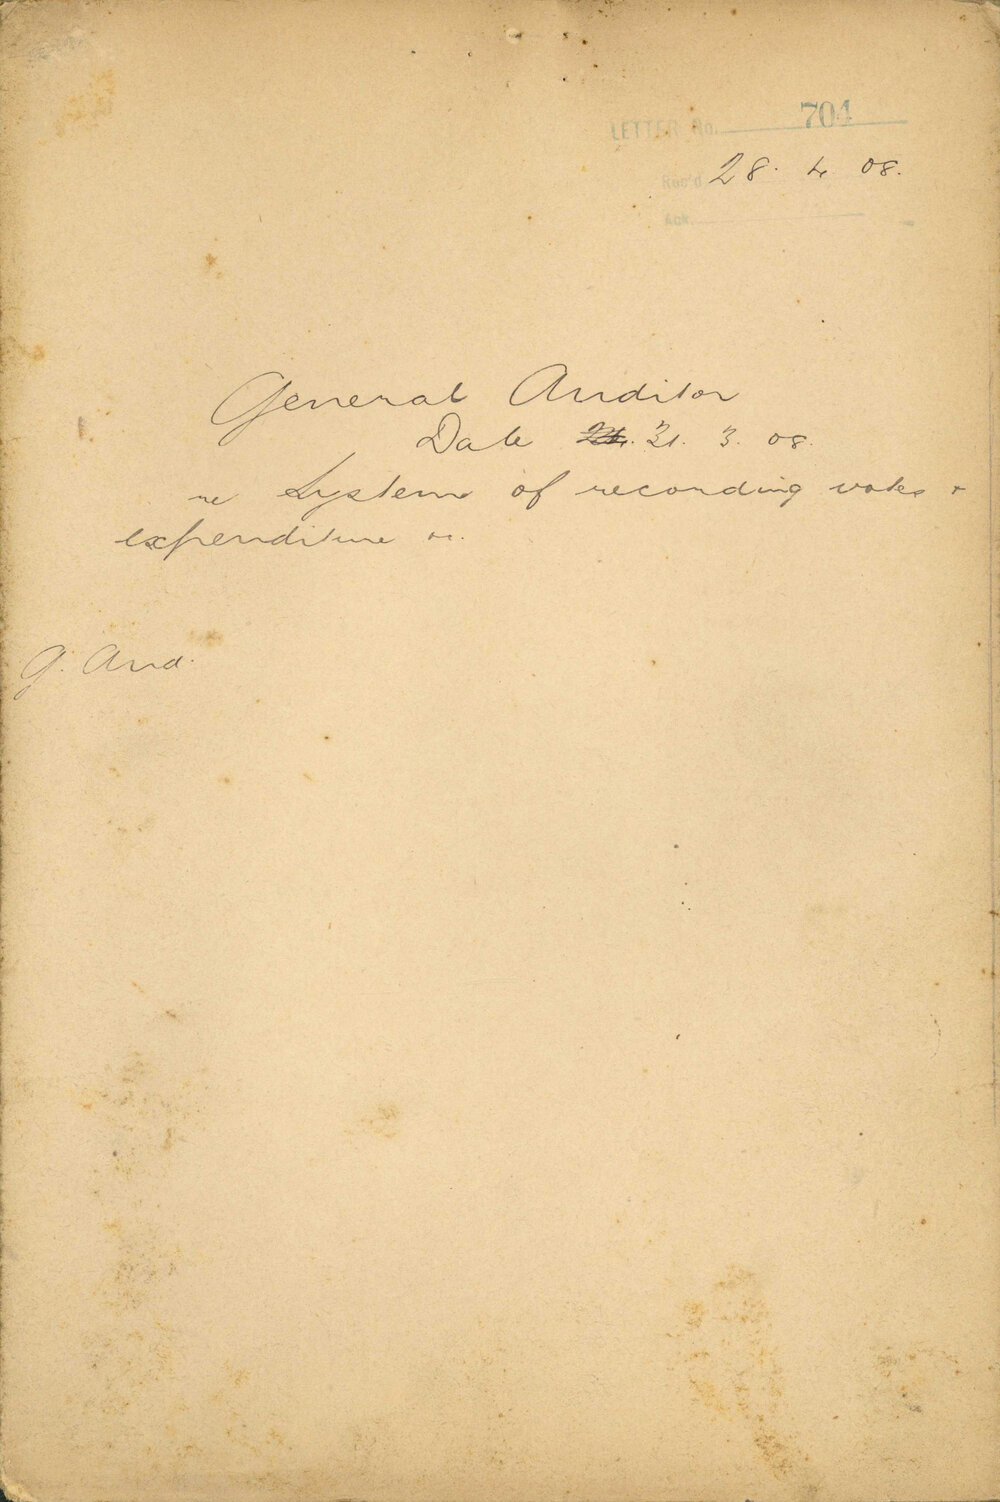 LETTER No. 704
Rec'd 28. 4 08.
Ack.
General Auditor
Date 31. 3. 08.
re System of recording votes +
expenditure
G. Aud.